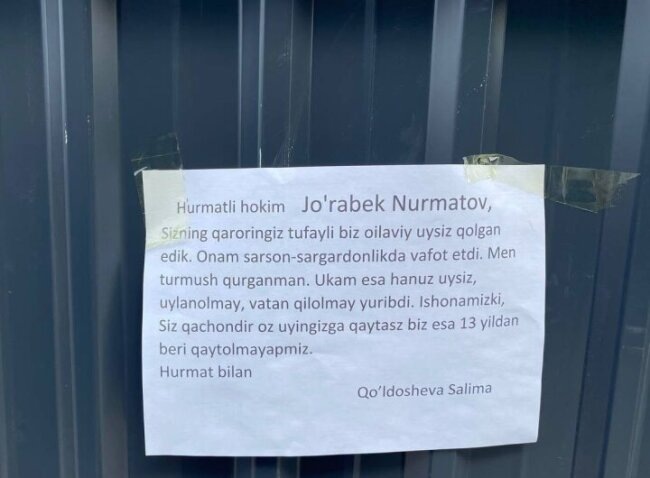 Hurmatli hokim Jo'rabek Nurmatov,
Sizning qaroringiz tufayli biz oilaviy uysiz qolgan
edik. Onam sarson-sargardonlikda vafot etdi. Men
turmush qurganman. Ukam esa hanuz uysiz,
uylanolmay, vatan qilolmay yuribdi. Ishonamizki,
Siz qachondir oz uyingizga qaytasz biz esa 13 yildan
beri qaytolmayapmiz.
Hurmat bilan
Qo’ldosheva Salima